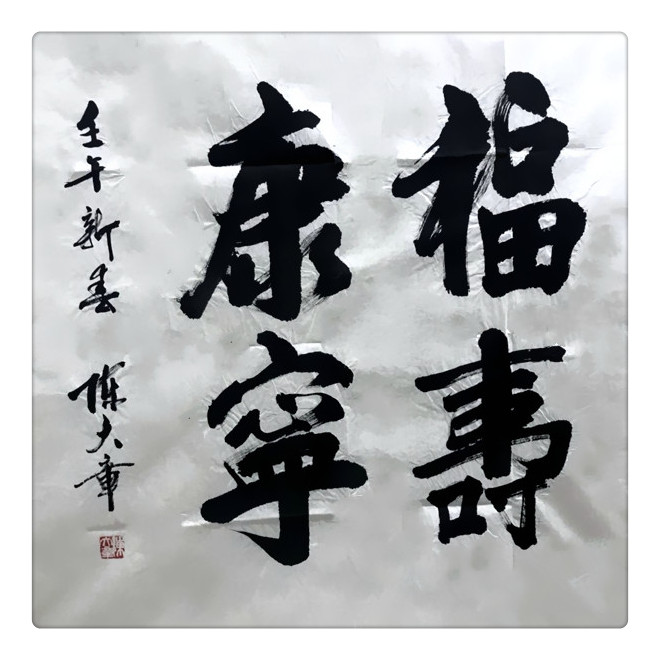 福壽
康寧
壬午新春 陳大章